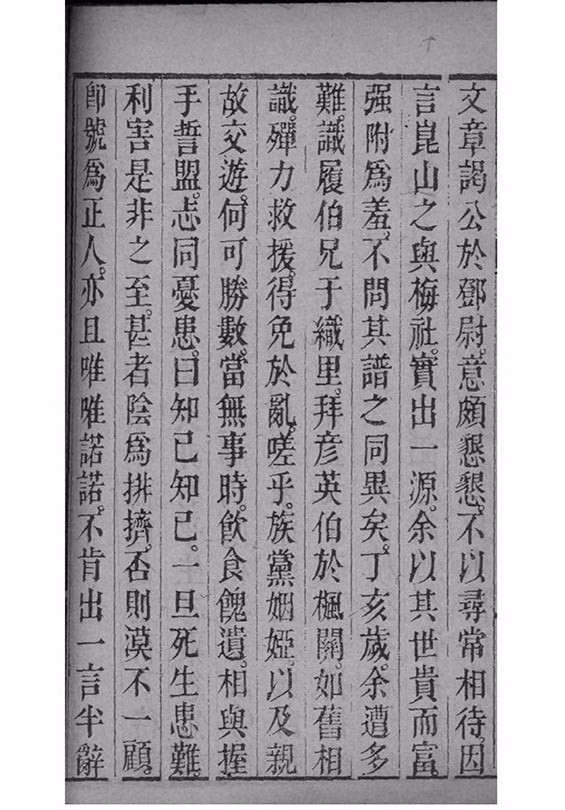 文章謁公於鄧尉。意頗懇懇。不以尋常相待。因
言崑山之與梅社。實出一源。余以其世貴而富
强附爲羞。不問其譜之同異矣。丁亥歲。余遭多
難。識履伯兄于織里。拜彦英伯於楓關。如舊相
識。殫力救援。得免於亂。嗟乎。族黨姻婭。以及親
故交遊。何可勝數。當無事時。飲食餽遺。相與握
手誓盟。志同憂患。曰知己知己。一旦死生患難。
利害是非之至。甚者陰爲排擠。否則漠不一顧。
卽號爲正人。亦且唯唯諾諾。不肯出一言半辭